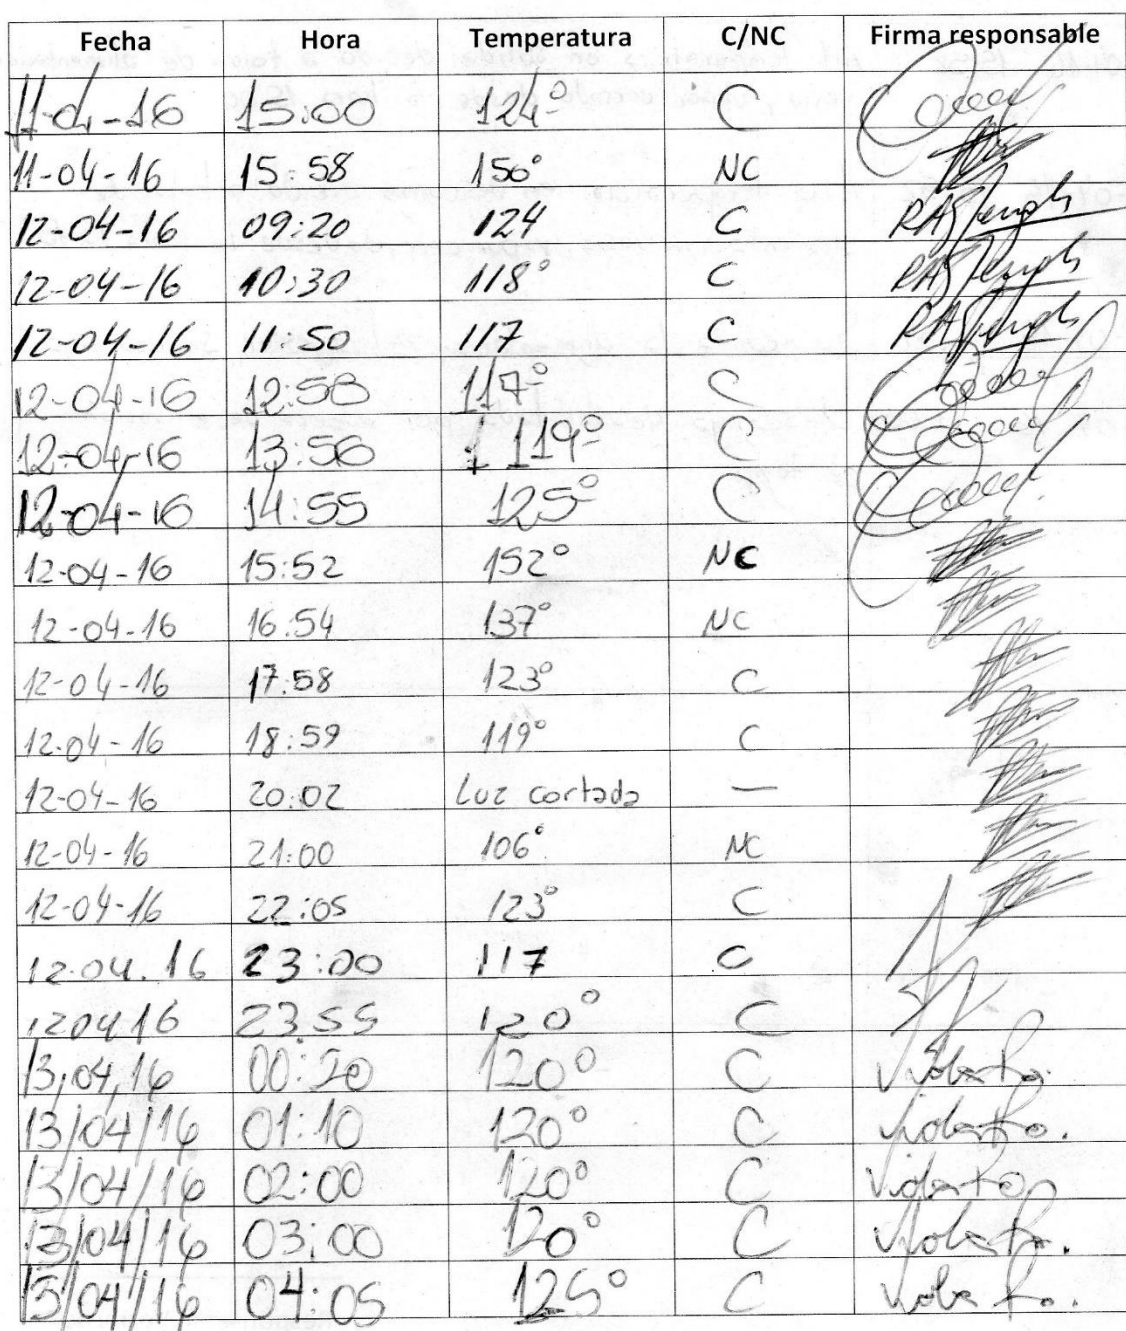 Fecha Hora Temperatura C/NC Firma responsable
11-04-16 15:00 124° C
11-04-16 15:58 156° NC
12-04-16 09:20 124 C
12-04-16 10:30 118° C
12-04-16 11:50 117 C
12-04-16 12:58 117° C
12-04-16 13:56 119° C
12-04-16 14:55 125° C
12-04-16 15:52 152° NC
12-04-16 16:54 137° NC
12-04-16 17:58 123° C
12-04-16 18:59 119° C
12-04-16 20:02 Luz cortada —
12-04-16 21:00 106° NC
12-04-16 22:05 123° C
12.04.16 23:00 117 C
12 04 16 23:55 120° C
13,04,16 00:20 120° C
13/04/16 01:10 120° C
13/04/16 02:00 120° C
13/04/16 03:00 120° C
13/04/16 04:05 125° C